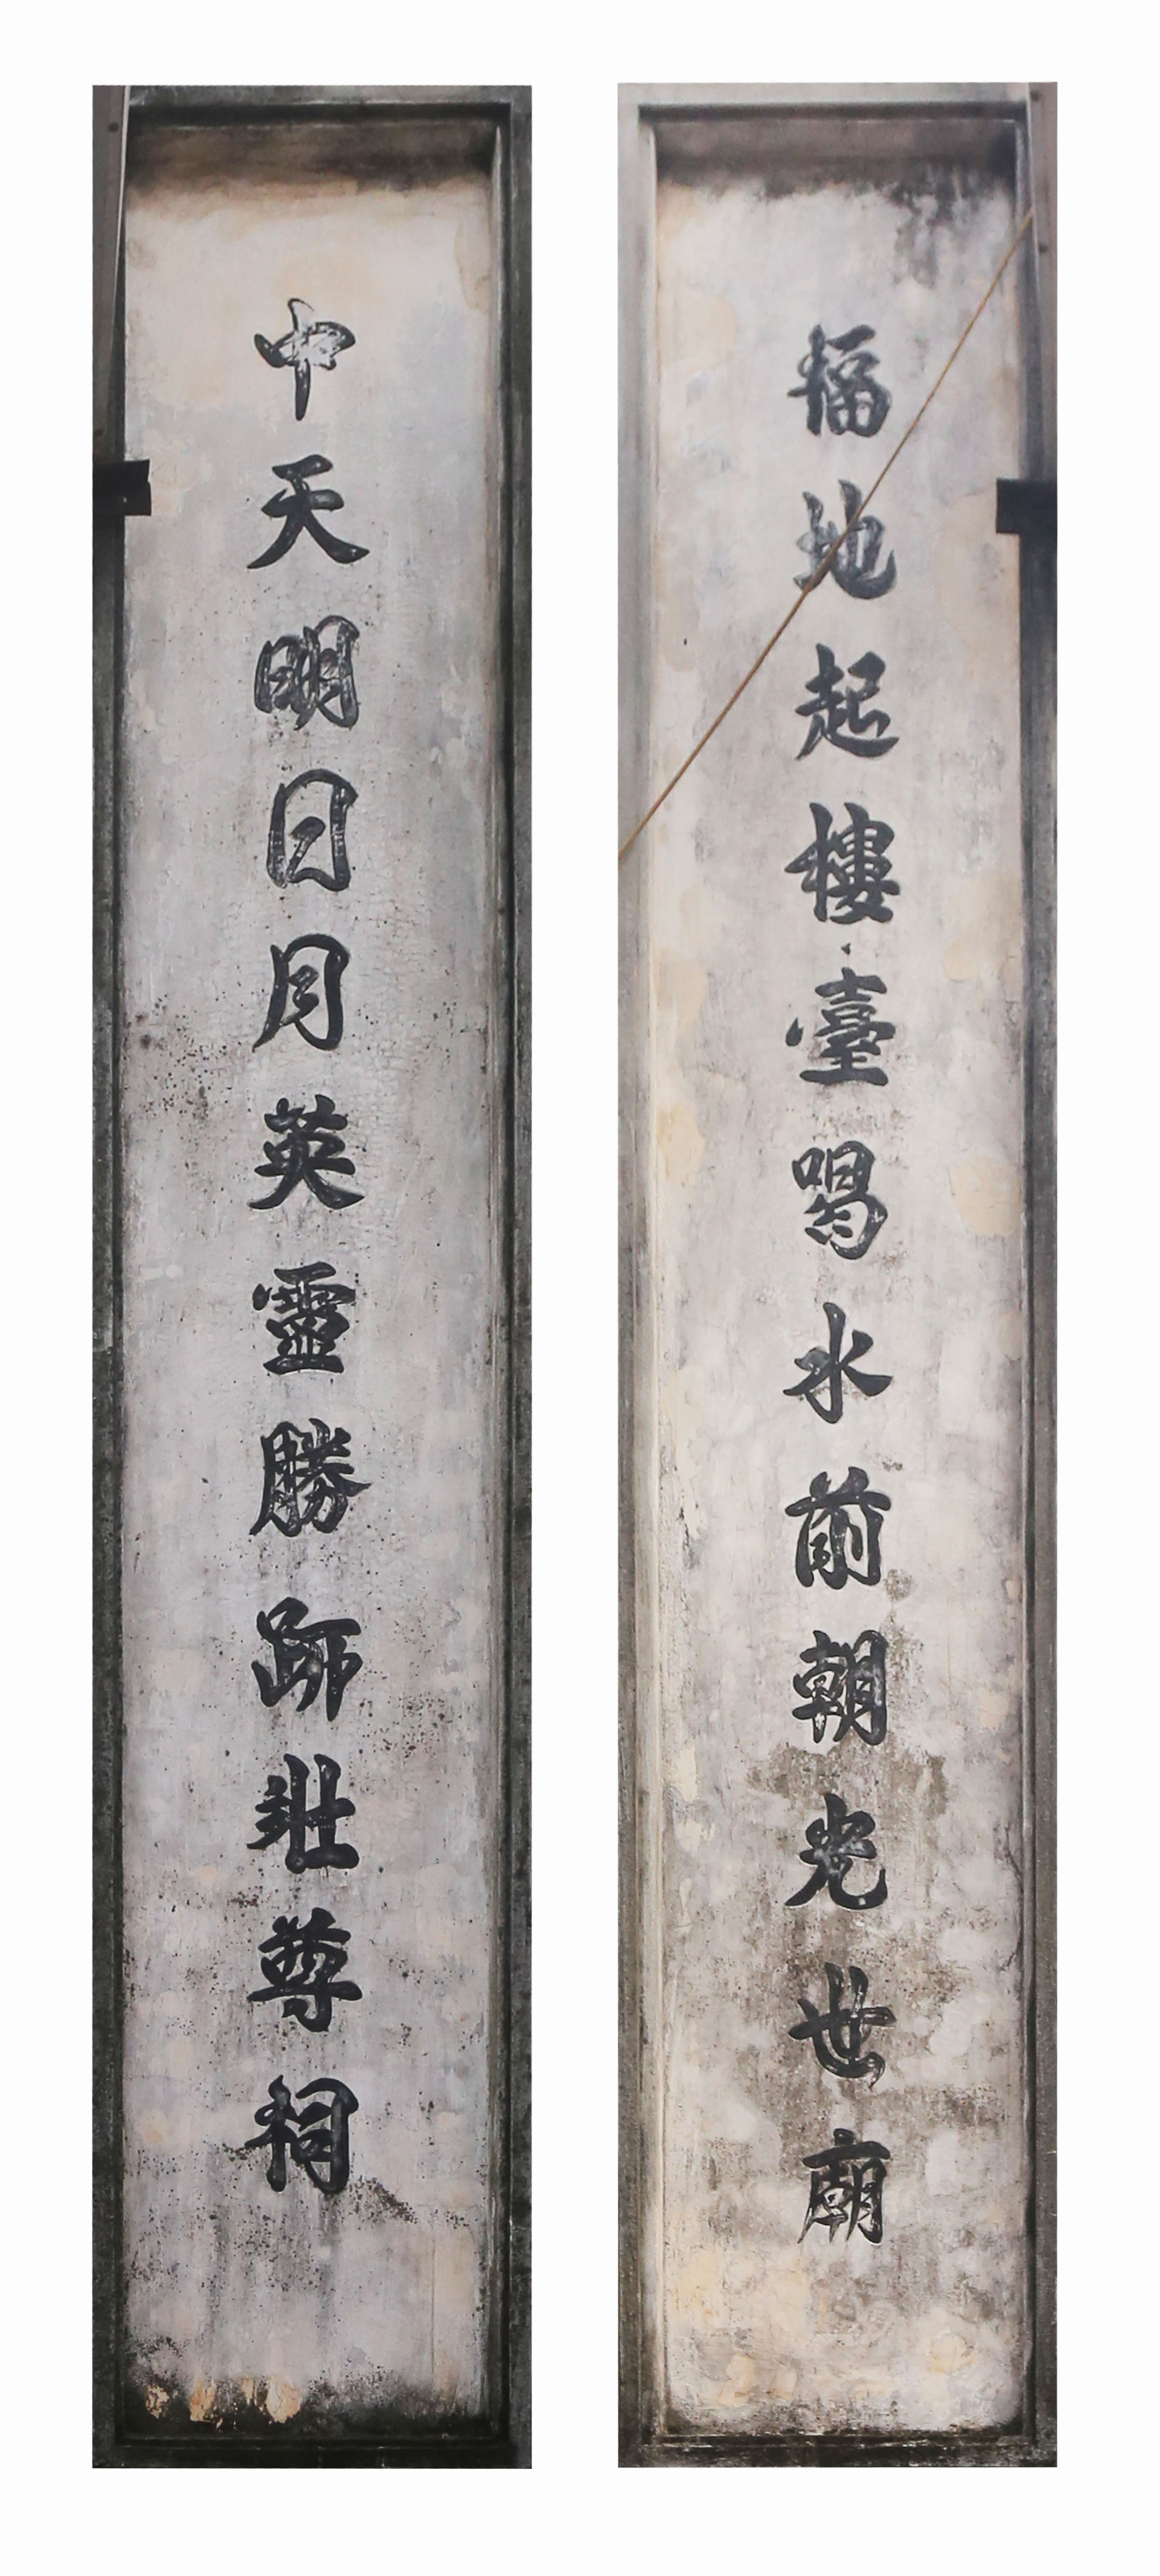 福地起樓臺喝水前朝光世廟
中天明日月英靈勝跡壯尊祠